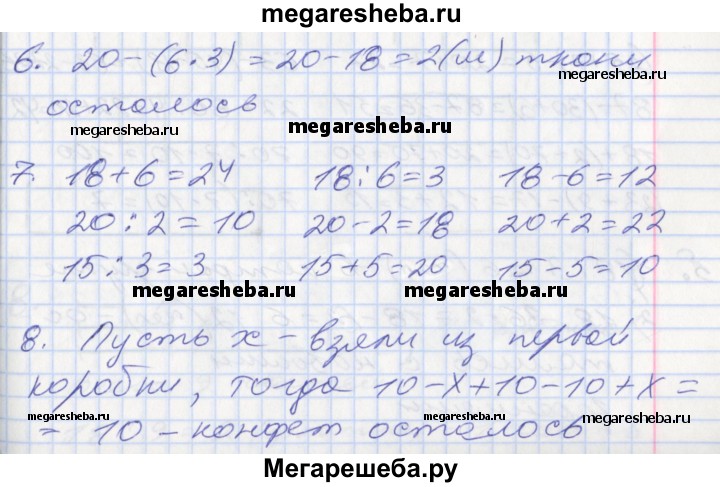 megaresheba.ru
6. 20-(6·3)=20-18=2(м) ткани
megaresheba.ru
осталось
megaresheba.ru
megaresheba.ru
7. 18+6=24 18:6=3 18-6=12
20:2=10 20-2=18 20+2=22
15:3=3 15+5=20 15-5=10
megaresheba.ru
megaresheba.ru
8. Пусть х - взяли из первой
коробки, тогда 10-х+10-10+х=
megaresheba.ru
megaresheba.ru
= 10 - конфет осталось
Мегарешеба.ру